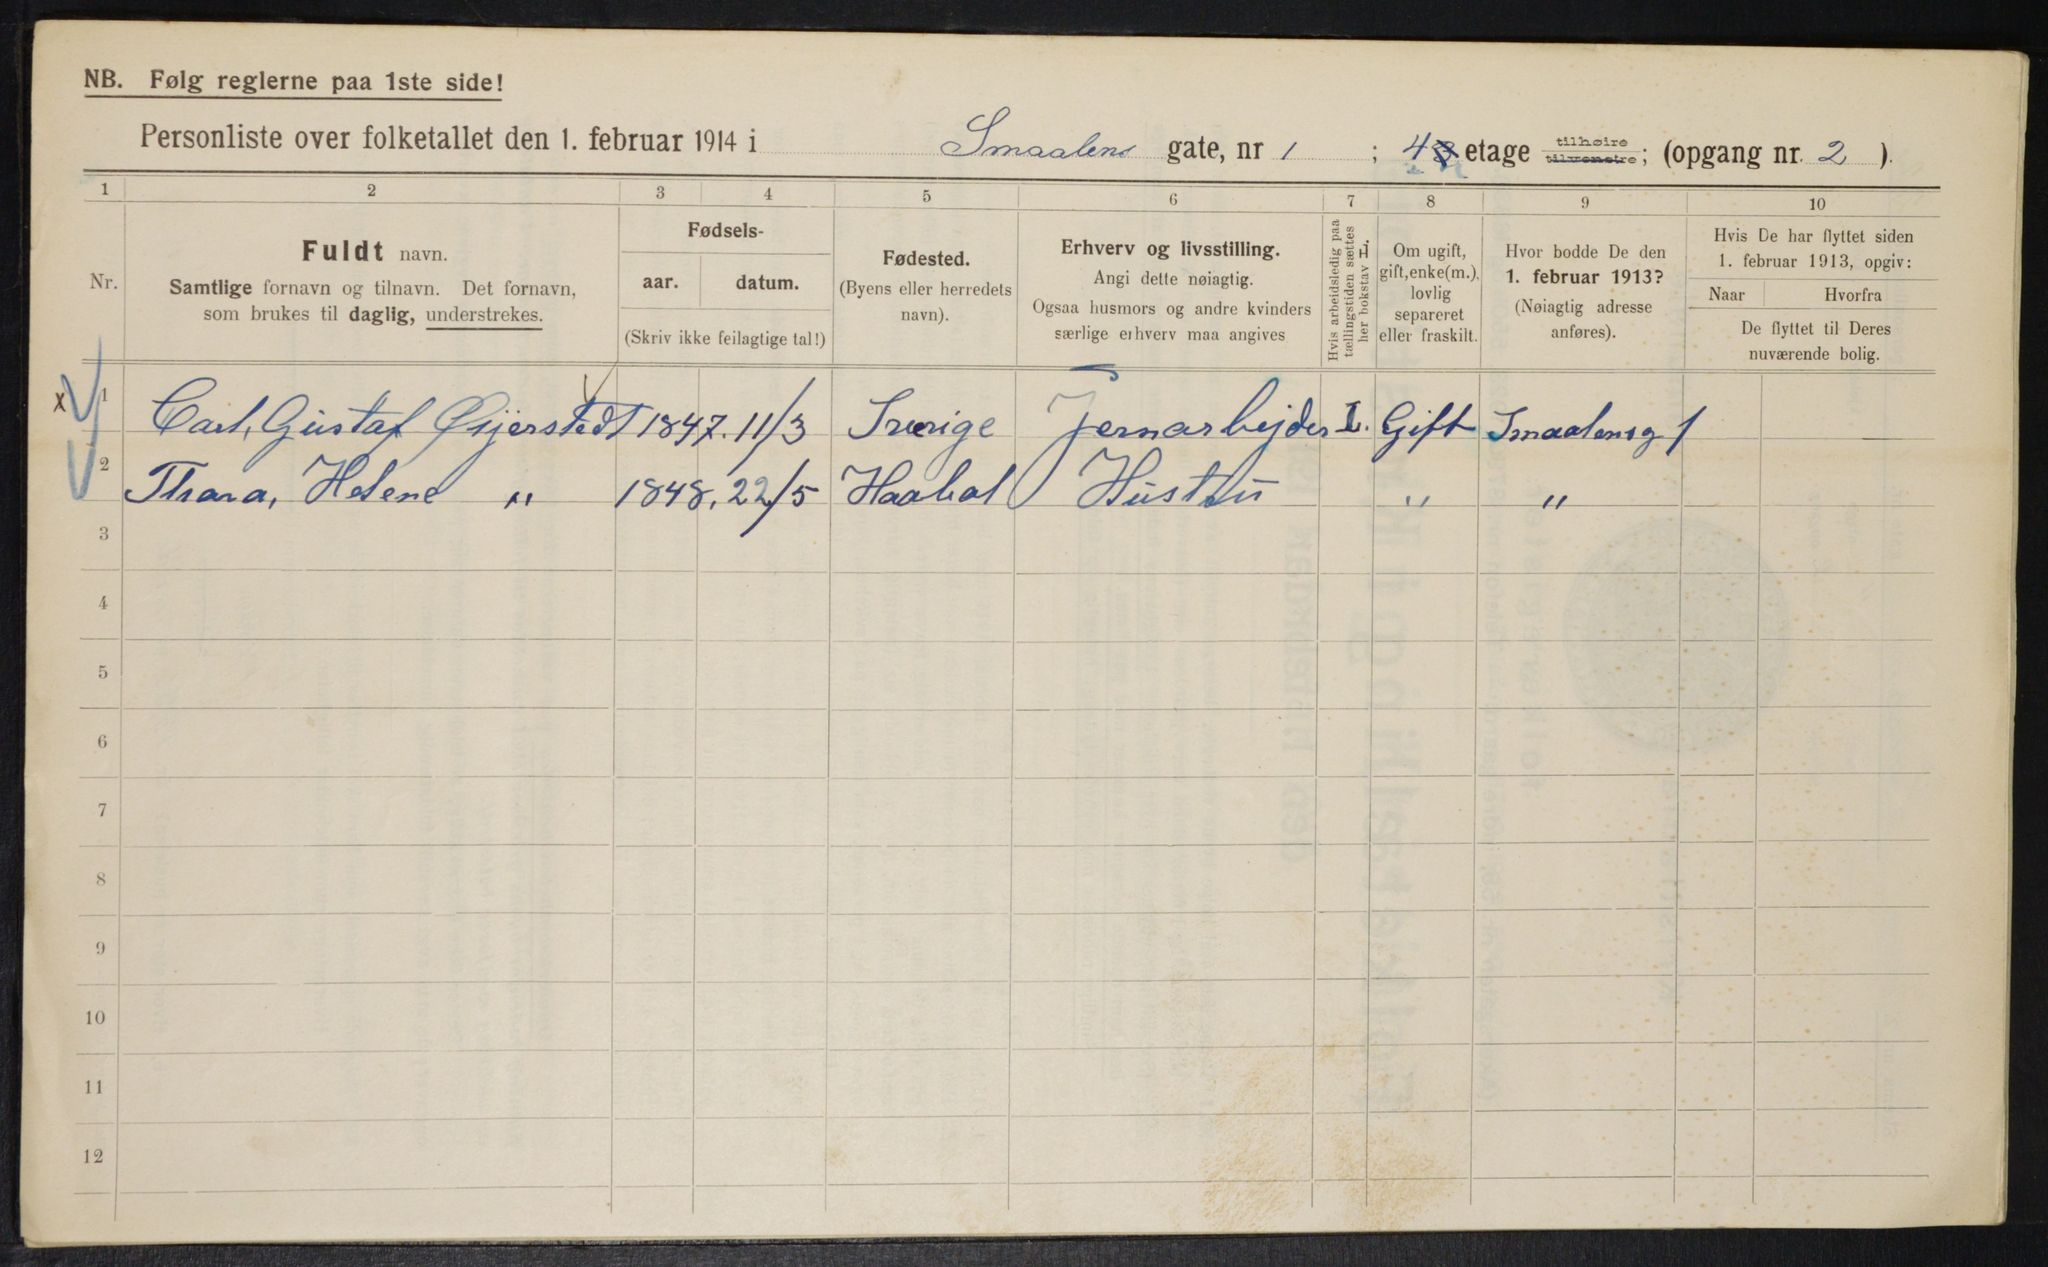 NB. Følg reglerne paa 1ste side!
Personliste over folketallet den 1. februar 1914 i Smaalens gate, nr 1 ; 4 etage tilhøire tilvenstre; (opgang nr. 2 ).
1 2 3 4 5 6 7 8 9 10
Nr.
Fuldt navn.
Samtlige fornavn og tilnavn. Det fornavn,
som brukes til daglig, understrekes.
Fødsels-
aar. datum.
(Skriv ikke feilagtige tal!)
Fødested.
(Byens eller herredets
navn).
Erhverv og livsstilling.
Angi dette nøiagtig.
Ogsaa husmors og andre kvinders
særlige erhverv maa angives
Hvis arbeidsledig paa
tællingstiden sættes
her bokstav L.
Om ugift,
gift, enke(m.),
lovlig
separeret
eller fraskilt.
Hvor bodde De den
1. februar 1913?
(Nøiagtig adresse
anføres).
Hvis De har flyttet siden
1. februar 1913, opgiv:
Naar Hvorfra
De flyttet til Deres
nuværende bolig.
x 1 Carl, Gustaf Øijerstedt 1847. 11/3 Sverige Jernarbejder L. Gift Smaalensg 1
2 Thara, Helene " 1848. 22/5 Haabøl Hustru " "
3
4
5
6
7
8
9
10
11
12